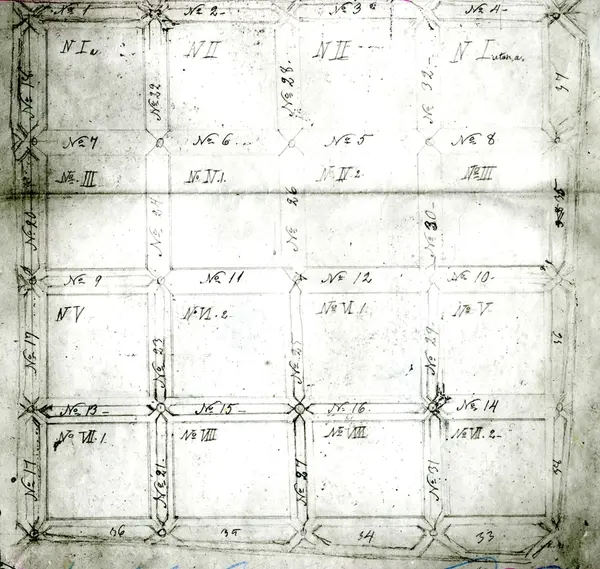 No 1 No 2 No 3 No 4
N I a N II N II N I
No 22 No 28 No 32
No 7 No 6 No 5 No 8
No III No IV.1. No IV.2. No III
No 20 No 24 No 26 No 30
No 9 No 11 No 12 No 10
N V No VI.2 No VI.1. No V
No 19 No 23 No 25 No 29
No 13 No 15 No 16 No 14
No VII.1. No VIII No VIII No VII.2
No 17 No 21 No 27 No 31
36 35 34 33